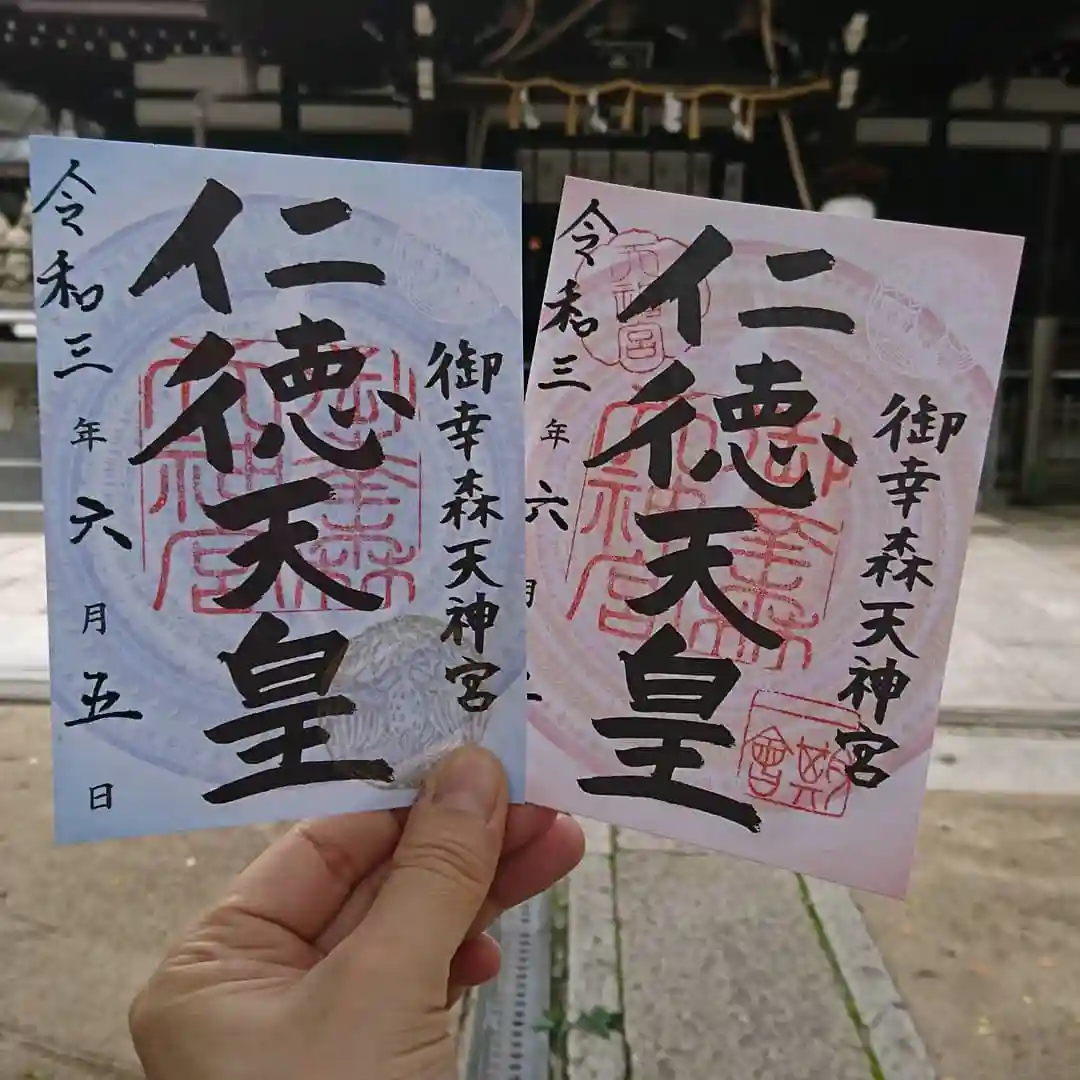 御幸森天神宮
仁徳天皇
令和三年六月五日
御幸森天神宮
天神宮
仁徳天皇
御幸森天神宮
令和三年六月
御幸森天神宮